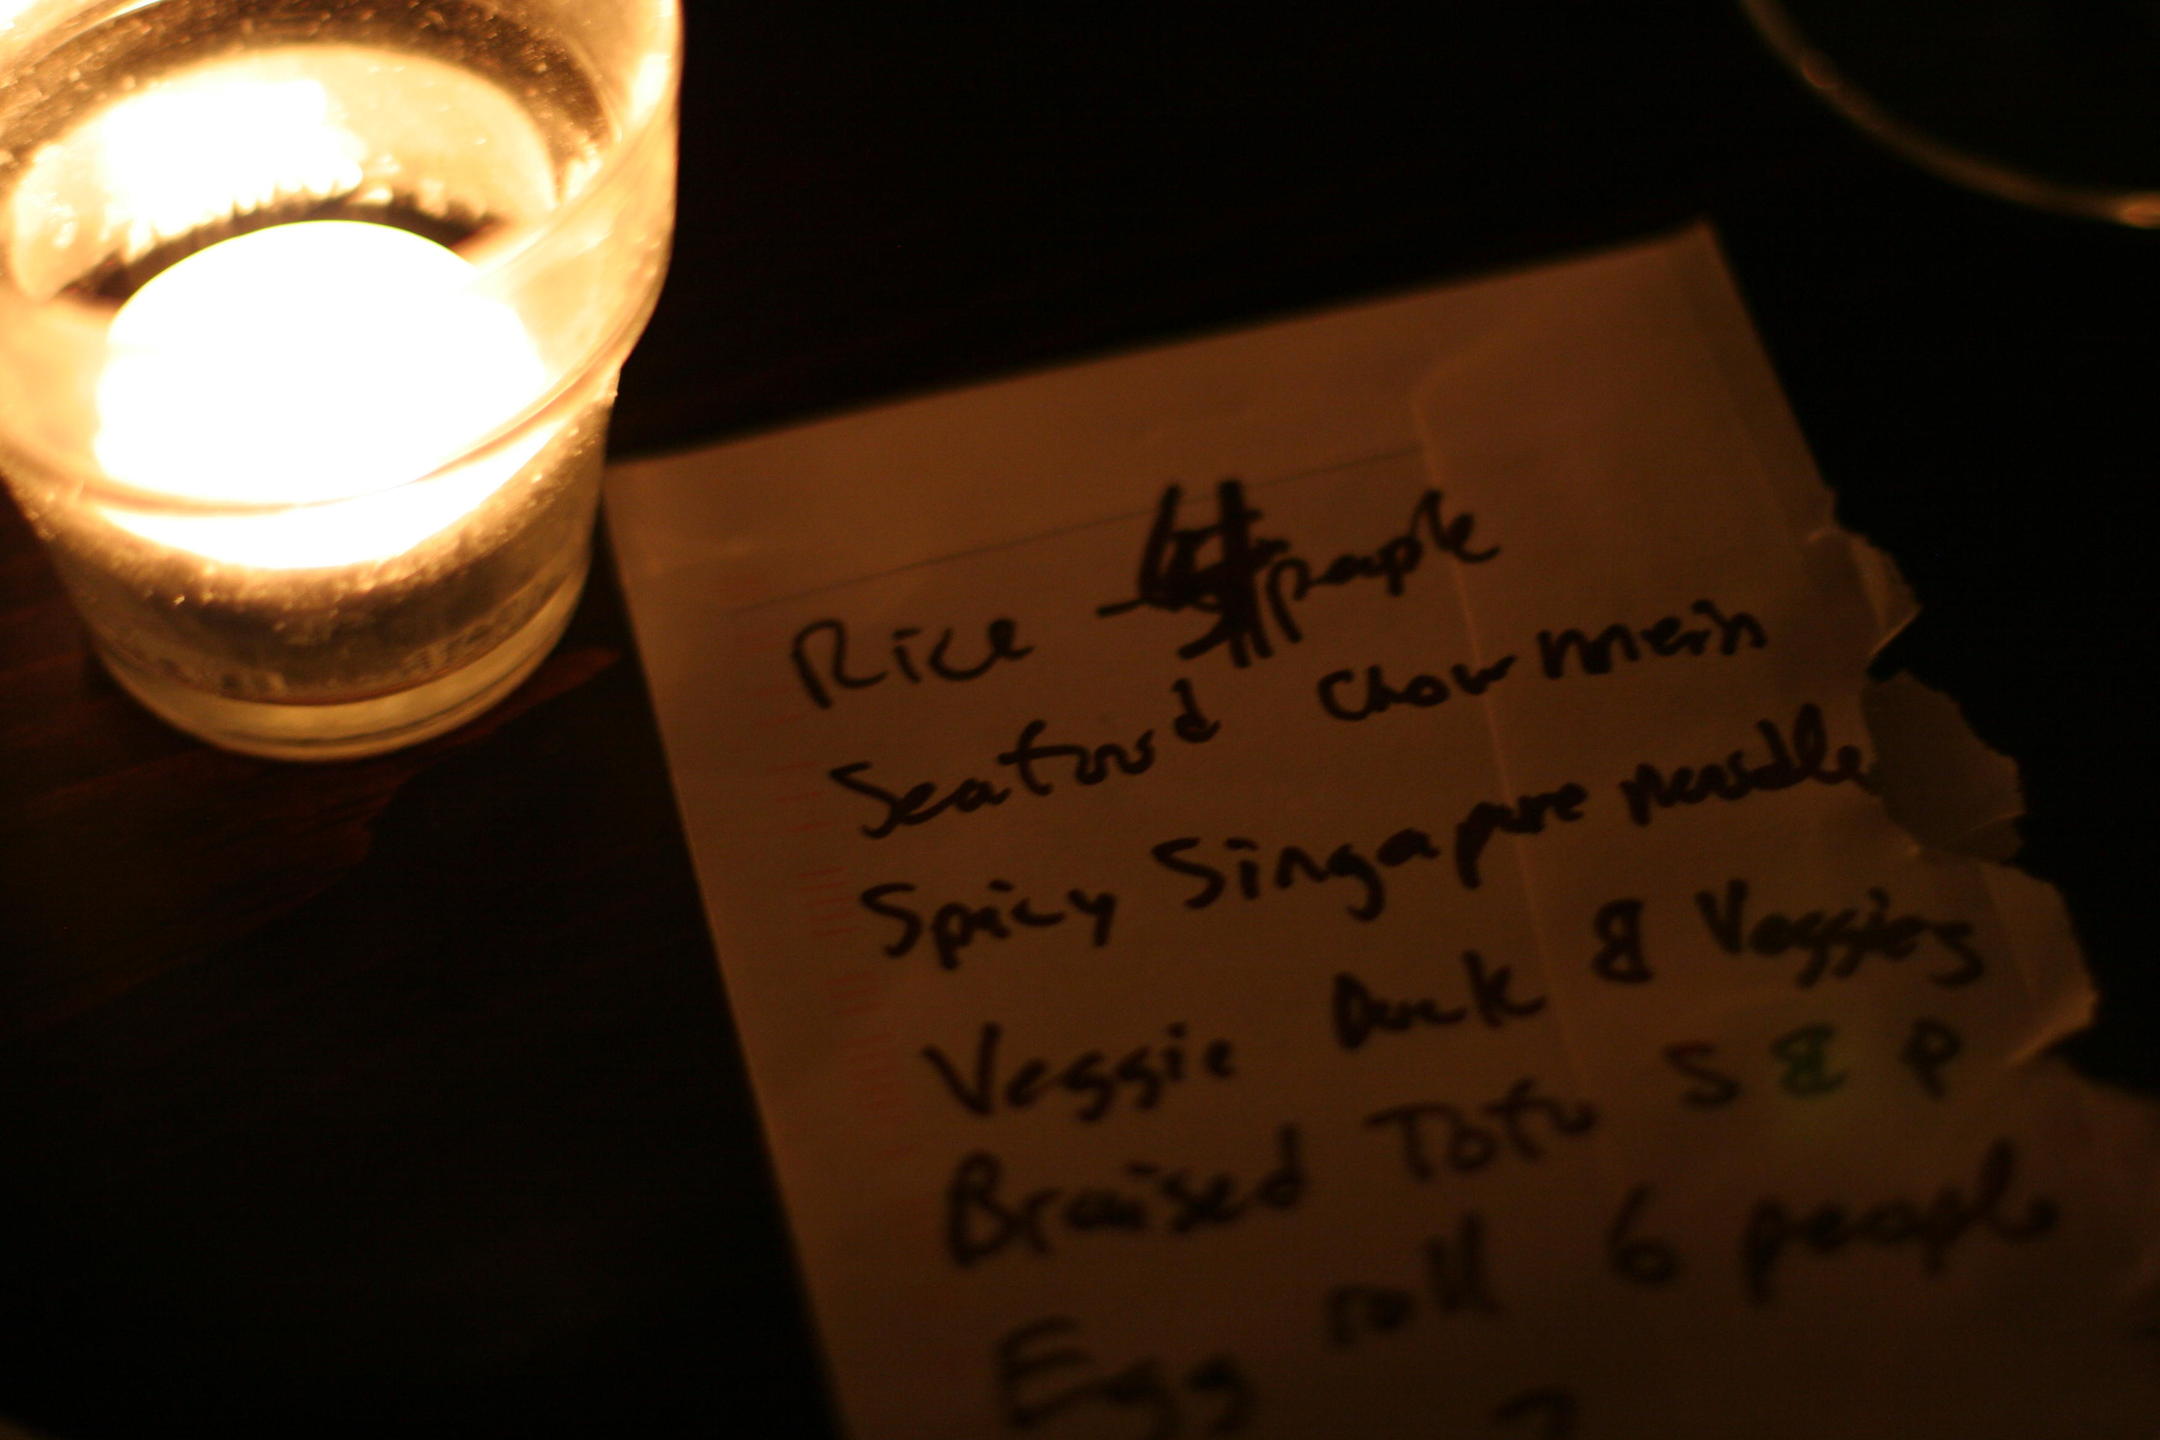 Rice 4 people
Seafood Chow mein
Spicy Singapore noodle
Veggie Duck & Veggies
Braised Tofu S & P
Egg roll 6 people